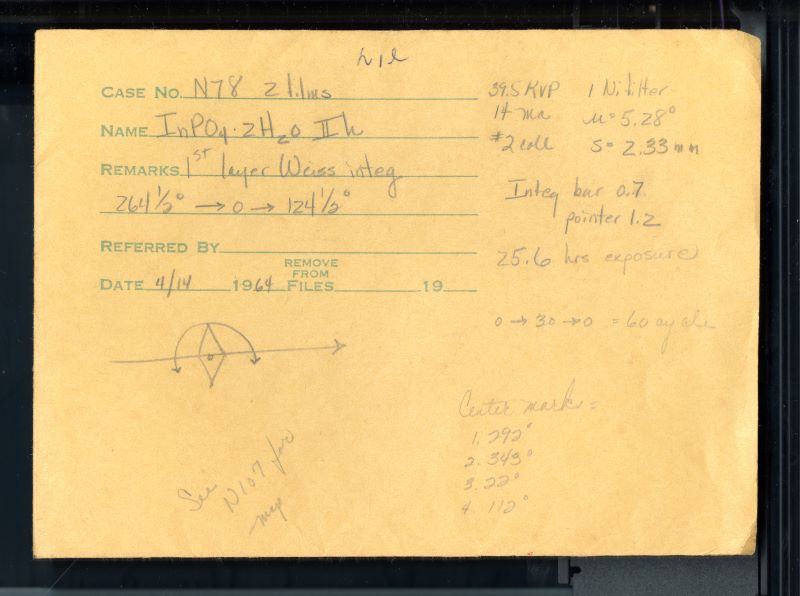 h1l
CASE No. N78 2 films
NAME InPO4·2H2O II h
REMARKS 1st layer Weiss integ
264 1/2° → 0 → 124 1/2°
REFERRED BY
DATE 4/14 1964 REMOVE FROM FILES 19
39.5 KVP 1 Ni filter
14 ma μ = 5.28°
#2 coll S = 2.33 mm
Integ bar 0.7
pointer 1.2
25.6 hrs exposure
0 → 30 → 0 = 60 cycle
Center marks =
1. 292°
2. 343°
3. 22°
4. 112°
See
N107 for